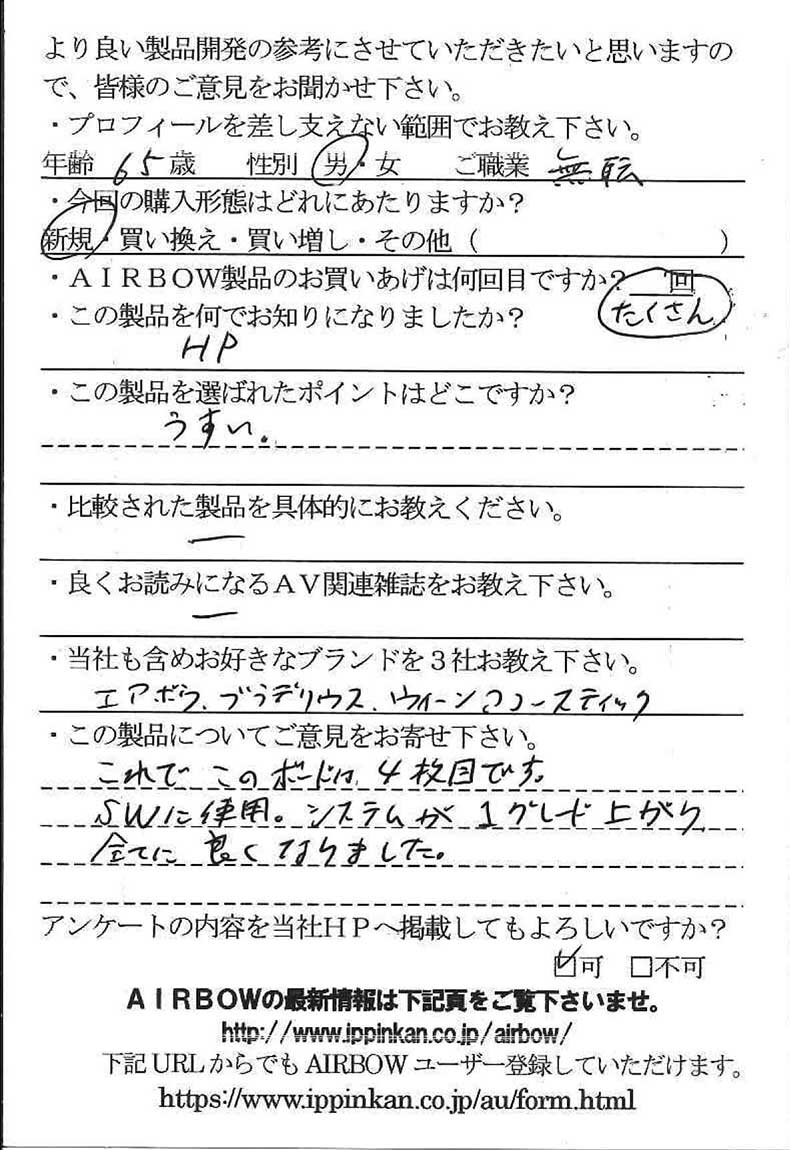 より良い製品開発の参考にさせていただきたいと思いますの
で、皆様のご意見をお聞かせ下さい。
・プロフィールを差し支えない範囲でお教え下さい。
年齢 65歳 性別 男・女 ご職業 無転
・今回の購入形態はどれにあたりますか?
新規・買い換え・買い増し・その他( )
・AIRBOW製品のお買いあげは何回目ですか? 回
たくさん
・この製品を何でお知りになりましたか?
HP
・この製品を選ばれたポイントはどこですか?
うすい。
・比較された製品を具体的にお教えください。
ー
・良くお読みになるAV関連雑誌をお教え下さい。
ー
・当社も含めお好きなブランドを3社お教え下さい。
エアボウ、ブラデリウス、ウィーンアコースティック
・この製品についてご意見をお寄せ下さい。
これで このボードは 4枚目です。
SWに使用。システムが 1グレード 上がり
全てに 良くなりました。
アンケートの内容を当社HPへ掲載してもよろしいですか?
☑可 □不可
AIRBOWの最新情報は下記頁をご覧下さいませ。
http://www.ippinkan.co.jp/airbow/
下記URLからでもAIRBOWユーザー登録していただけます。
https://www.ippinkan.co.jp/au/form.html